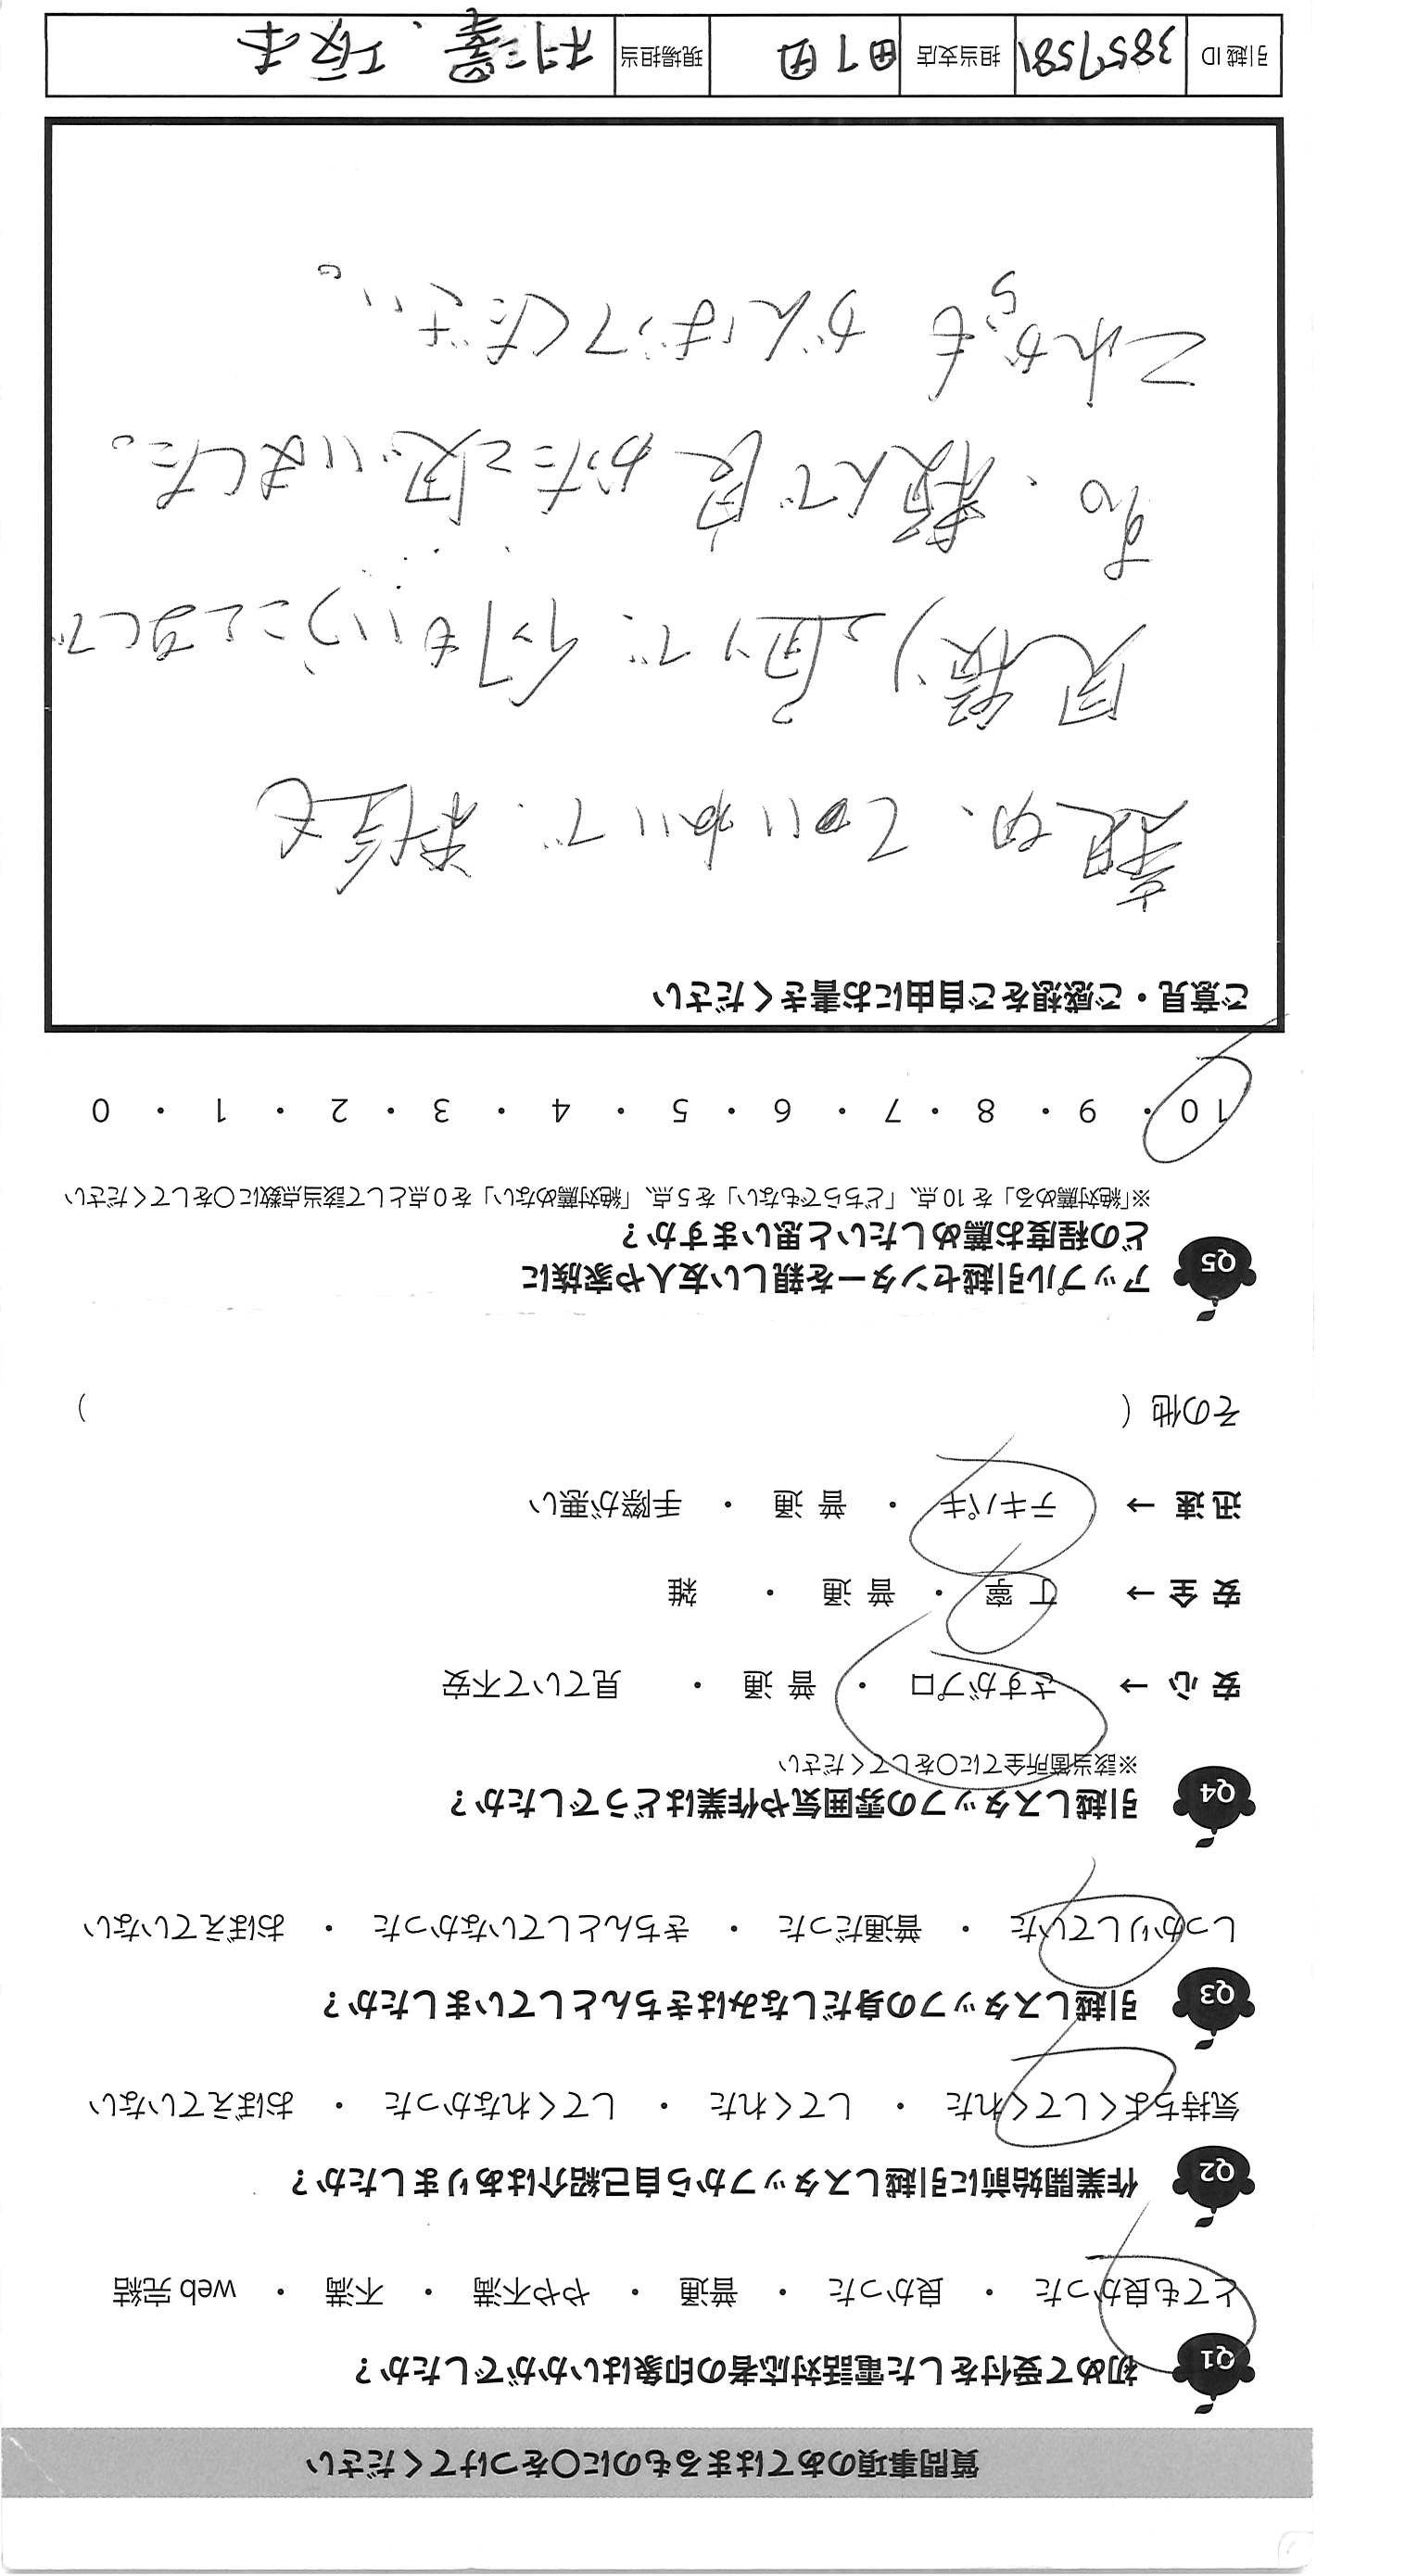 質問事項のあてはまるものに〇をつけてください
Q1 初めて受付をした電話対応者の印象はいかがでしたか？
とても良かった ・ 良かった ・ 普通 ・ やや不満 ・ 不満 ・ web 完結
Q2 作業開始前に引越しスタッフから自己紹介はありましたか？
気持ちよくしてくれた ・ してくれた ・ してくれなかった ・ おぼえていない
Q3 引越しスタッフの身だしなみはきちんとしていましたか？
しっかりしていた ・ 普通だった ・ きちんとしていなかった ・ おぼえていない
Q4 引越しスタッフの雰囲気や作業はどうでしたか？
※該当箇所全てに〇をしてください
安心 → さすがプロ ・ 普通 ・ 見ていて不安
安全 → 丁寧 ・ 普通 ・ 雑
迅速 → テキパキ ・ 普通 ・ 手際が悪い
その他（ ）
Q5 アップル引越センターを親しい友人や家族に
どの程度お薦めしたいと思いますか？
※「絶対薦める」を 10 点、「どちらでもない」を 5 点、「絶対薦めない」を 0 点として該当点数に〇をしてください
10 ・ 9 ・ 8 ・ 7 ・ 6 ・ 5 ・ 4 ・ 3 ・ 2 ・ 1 ・ 0
ご意見・ご感想をご自由にお書きください
親切、ていねいで、料金も
見積り通りで、何もいうことまして
、頼んで良かたと思いました。
これからも がんばってください。
引越 ID 3857581 担当支店 現場担当 村澤、坂本